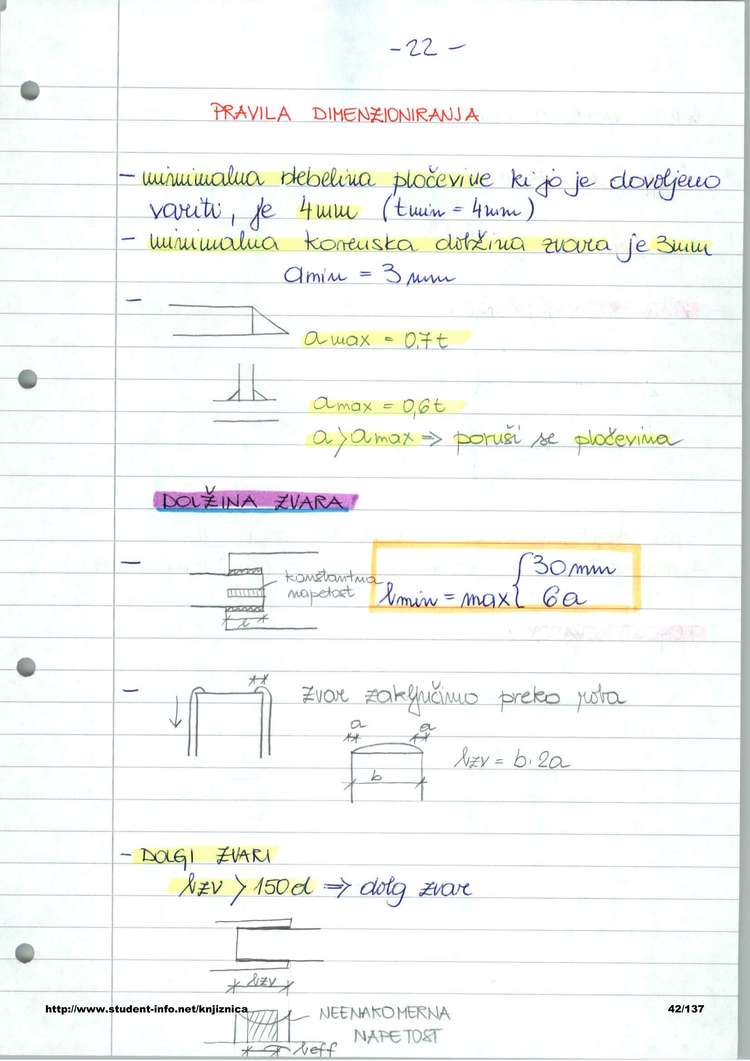 -22-
PRAVILA DIMENZIONIRANJA
- minimalna debelina pločevine ki jo je dovoljeno
variti, je 4mm (tmin = 4mm)
- minimalna korenska dolžina zvara je 3mm
amin = 3 mm
-
amax = 0,7t
amax = 0,6t
a > amax => poruši se pločevina
DOLŽINA ZVARA
-
konstantna
napetost
lmin = max { 30 mm
6a
l
- zvar zaključimo preko roba
a a
lzv = b·2a
b
- DOLGI ZVARI
lzv > 150d => dolg zvar
lzv
http://www.student-info.net/knjiznica
42/137
NEENAKOMERNA
NAPETOST
leff